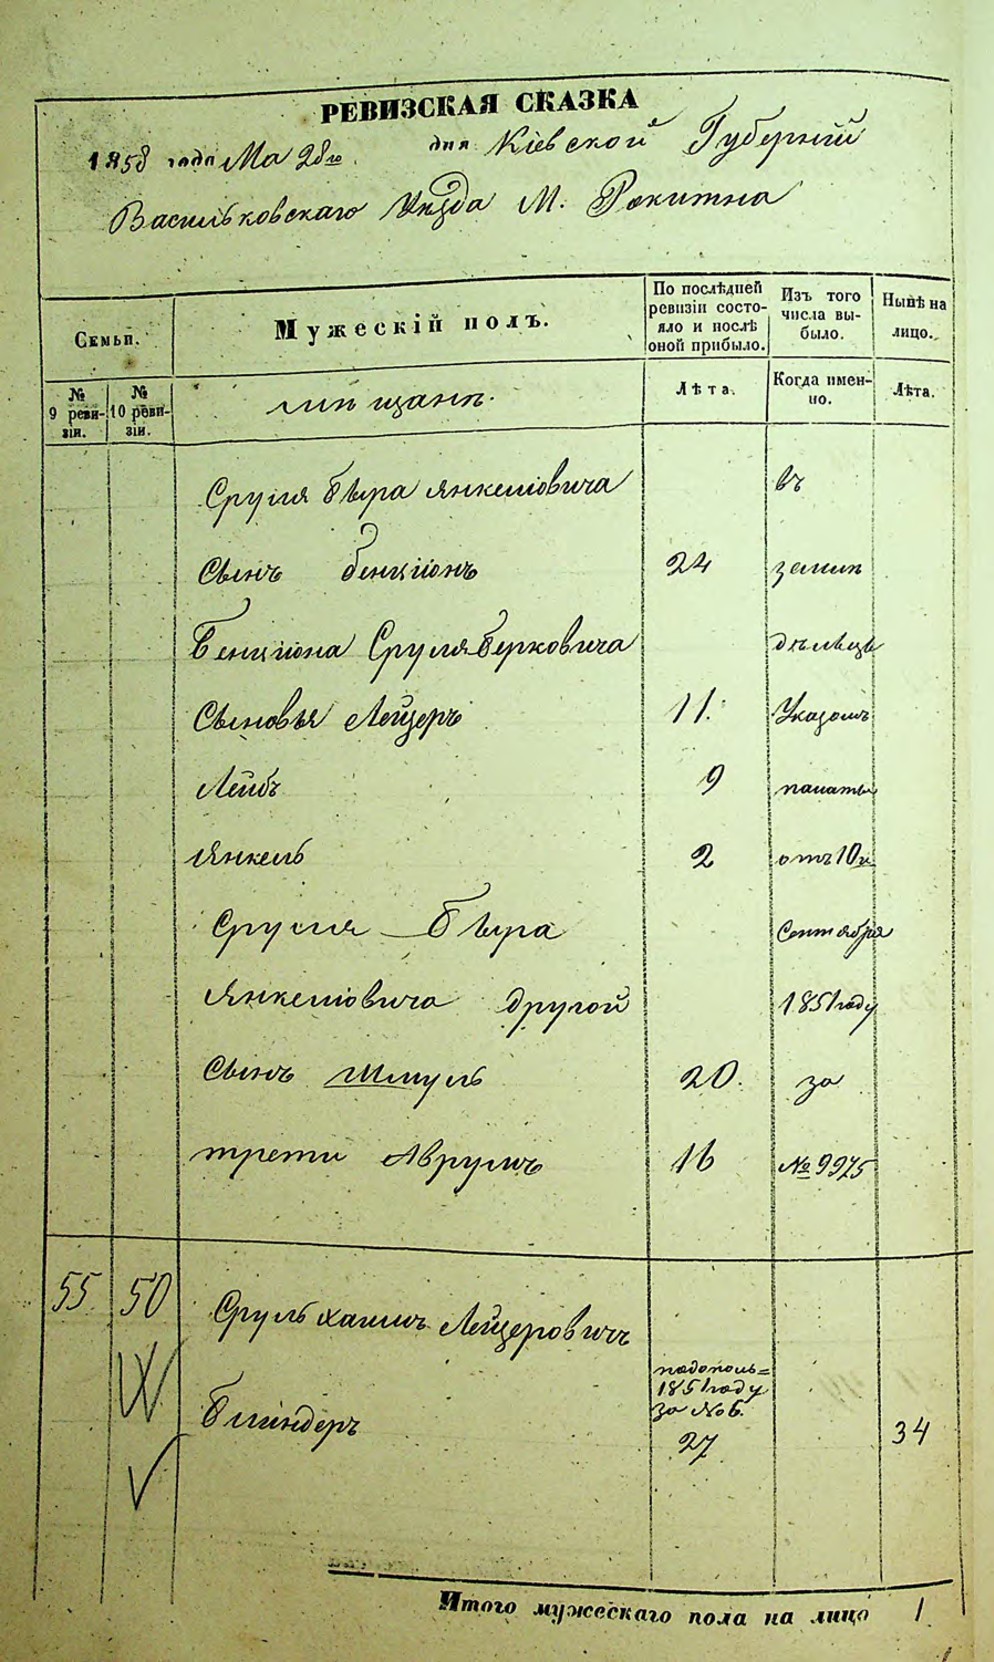 РЕВИЗСКАЯ СКАЗКА
1858 года Мая 28го дня Кіевской Губерніи
Васильковскаго Уѣзда М. Рокитна
Семьи.
Мужескій полъ.
По послѣдней ревизіи состояло и послѣ оной прибыло.
Изъ того числа выбыло.
Нынѣ на лицо.
№ 9 ревизіи.
№ 10 ревизіи.
мѣщанъ.
Лѣта.
Когда именно.
Лѣта.
Сруля Бера Янкелiовича въ
Сынъ Бенціонъ 24 земле
Бенціона Сруля Берковича дѣльцы
Сыновья Лейзеръ 11. Указомъ
Лейбъ 9 палаты
Янкель 2 отъ 10го
Сруля Бера Сентября
Янкелiовича другой 1851 году
Сынъ Шмуль 20. за
трети Аврумъ 16 № 9975
55 50 Сруль Хаимъ Лейзеровичъ
1851 году
за № 6.
27 34
Итого мужескаго пола на лицо 1